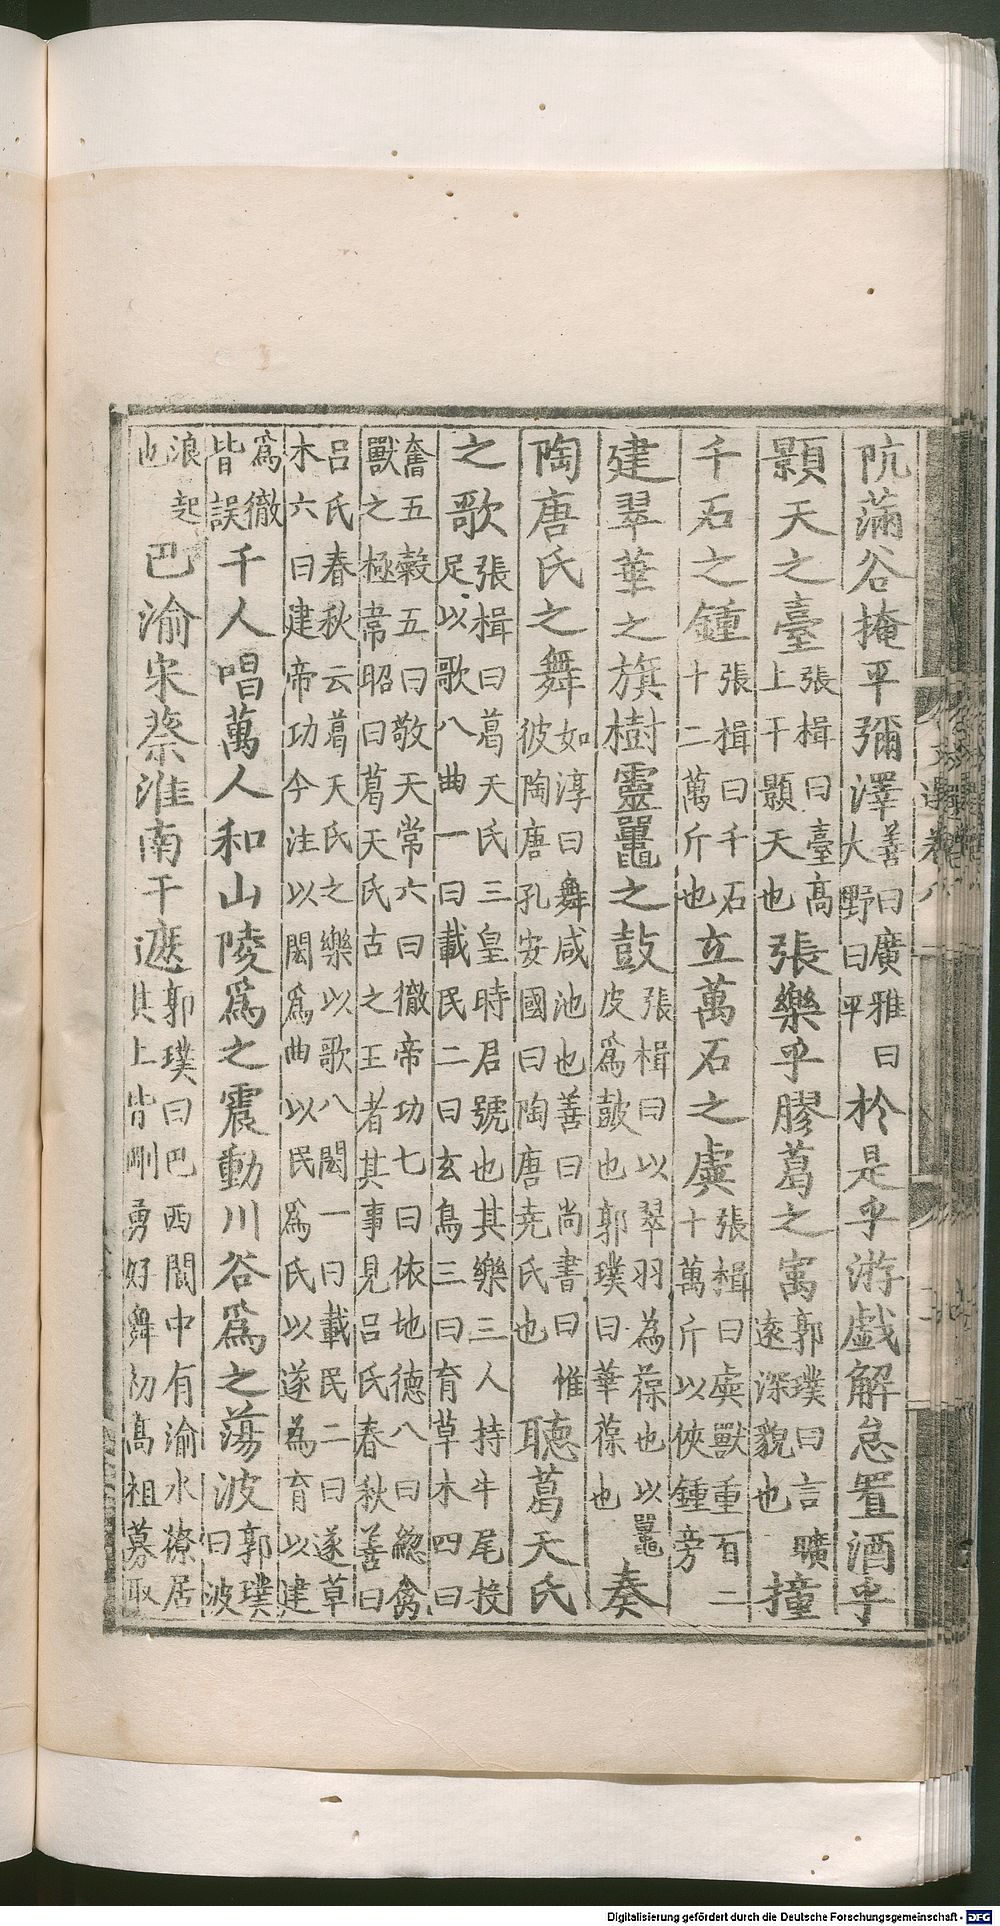 阬滿谷掩平彌澤善曰廣雅曰大野曰平於是乎游戲解怠置酒乎
顥天之臺張楫曰臺高上干顥天也張樂乎膠葛之㝢郭璞曰言曠遠深貌也撞
千石之鍾張楫曰千石十二萬斤也立萬石之虡張楫曰虡獸重百二十萬斤以俠鍾旁
建翠華之旗樹靈鼉之鼓張楫曰以翠羽為葆也以鼉皮爲鼓也郭璞曰華葆也奏
陶唐氏之舞如淳曰舞咸池也善曰尚書曰惟彼陶唐孔安國曰陶唐堯氏也聽葛天氏
之歌張楫曰葛天氏三皇時君號也其樂三人持牛尾投足以歌八曲一曰載民二曰玄鳥三曰育草木四曰
奮五穀五曰敬天常六曰徹帝功七曰依地德八曰緫禽獸之極韋昭曰葛天氏古之王者其事見呂氏春秋善曰
呂氏春秋云葛天氏之樂以歌八闋一曰載民二曰遂草木六曰建帝功今注以闋爲曲以民爲氏以遂為育以建
爲徹皆誤千人唱萬人和山陵爲之震動川谷爲之蕩波郭璞曰波
浪起也巴渝宋蔡淮南干遮郭璞曰巴西閬中有渝水獠居其上皆剛勇好舞初高祖募取
選卷八
Digitalisierung gefördert durch die Deutsche Forschungsgemeinschaft - DFG